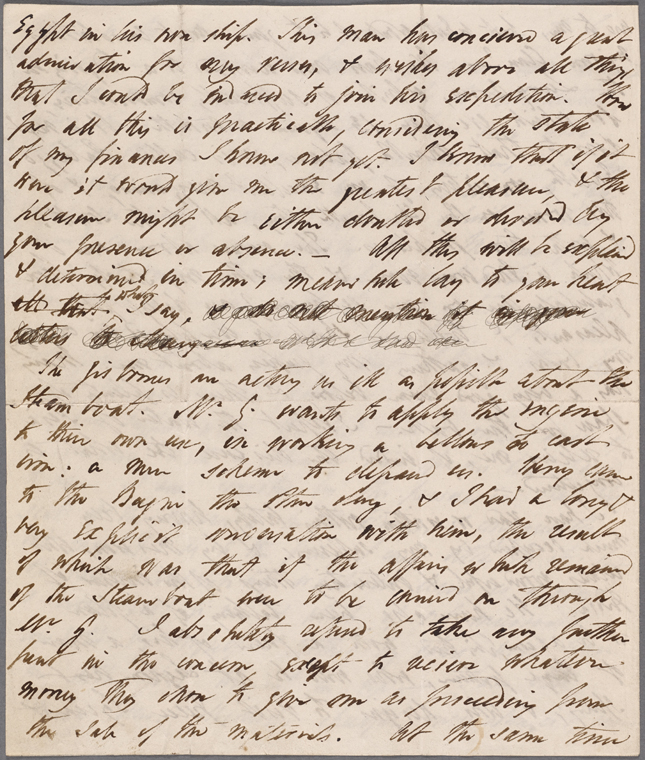 Egypt in his own ship. This man has concieved a great
admiration for my verses, & wishes above all things
that I could be induced to join his expedition. How
far all this is practicable, considering the state
of my finances I know not yet. I know that if it
were it would give me the greatest pleasure, & the
pleasure might be either doubled or divided by
your presence or absence. — All this will be explained
& determined in time; meanwhile lay to your heart
what I say, mention it in your
letters
The Gisbornes are acting as ill as possible about the
Steam boat. Mr. G. wants to apply the engine
to their own use, in working a bellows to cast
iron: a mere scheme to defraud us. Henry came
to the Bagni the other day, & I had a long &
very explicit conversation with him, the result
of which was that if the affairs which remained
of the Steamboat were to be carried on through
Mr. G. I absolutely refused to take any further
part in the concern except to recieve whatever
money they chose to give me as proceeding from
the sale of the materials. At the same time